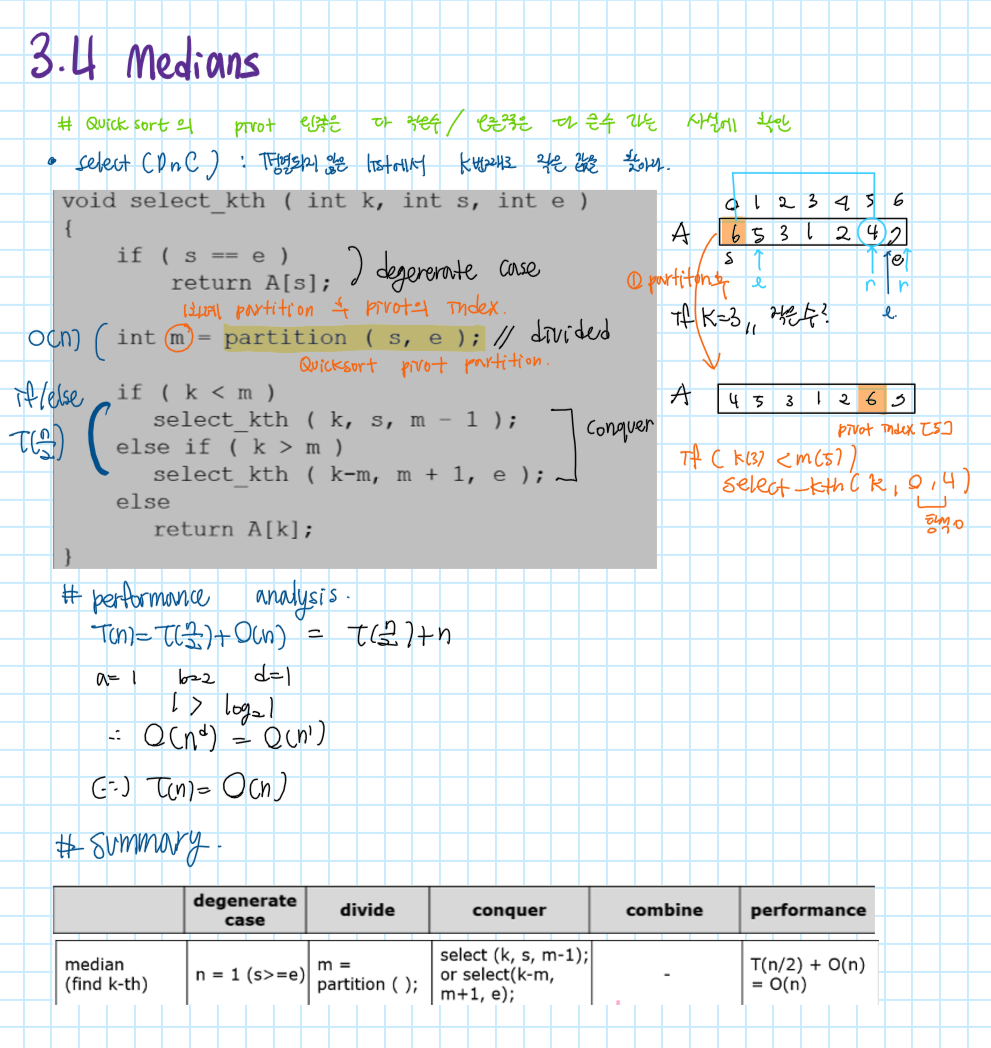 3.4 Medians
# Quick sort의 pivot 왼쪽은 다 작은수 / 오른쪽은 다 큰수 라는 사실에 착안
• select (DnC) : 정렬되지 않은 list에서 k번째로 작은 값을 찾아라.
void select_kth ( int k, int s, int e )
{
if ( s == e )
return A[s];
) degererate case
partition 후 pivot의 index.
O(n) ( int m = partition ( s, e ); // divided
Quicksort pivot partition.
if/else
T(n/2)
if ( k < m )
select_kth ( k, s, m - 1 );
else if ( k > m )
select_kth ( k-m, m + 1, e );
else
return A[k];
}
conquer
0 1 2 3 4 5 6
A 6 5 3 1 2 4
s e
① partition후 e r r
if k=3,, 작은수?
e
A 4 5 3 1 2 6
pivot index [5]
if ( k(3) < m(5) )
select_kth ( k, 0, 4 )
# performance analysis.
T(n)= T(n/2)+O(n) = T(n/2)+n
a= 1 b=2 d=1
1 > log₂1
∴ O(nᵈ) = O(n¹)
(∴) T(n)= O(n)
# Summary.
degenerate case divide conquer combine performance
median (find k-th) n = 1 (s>=e) m = partition ( ); select (k, s, m-1); or select(k-m, m+1, e); - T(n/2) + O(n) = O(n)